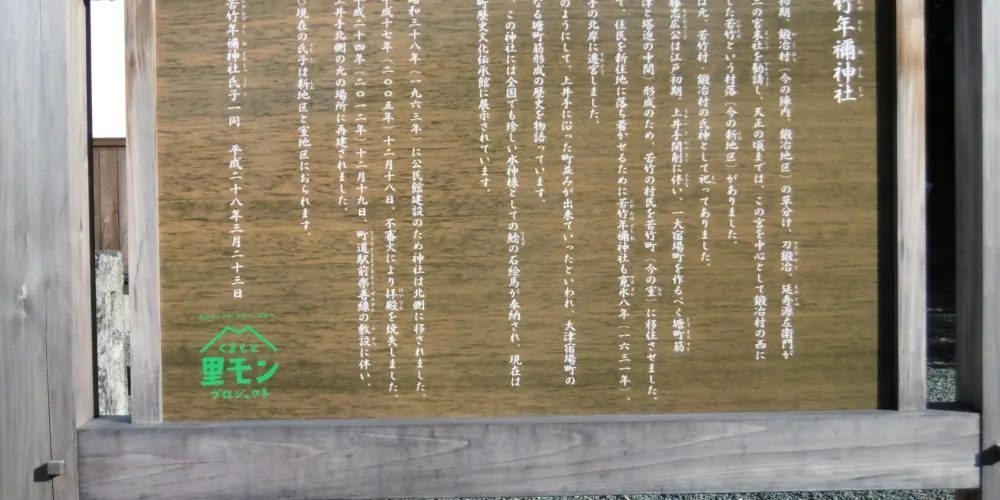 竹年禰神社
初期、鍛冶村(今の陣内、鍛冶地区)の草分け、刀鍛冶、延寿源左衛門が
三の宮末社を勧請し、天正の頃までは、この宮を中心として鍛冶村の西に
した若竹という村落(今の新地区)がありました。
は元、若竹村、鍛冶村の氏神として祀ってありました。
藤忠広公は江戸初期、上井手開削に伴い、一大宿場町を作るべく塘町筋
津と塔迫の中間)形成のため、若竹の村民を若竹町(今の室)に移住させました。
て、住民を新住地に落ち着かせるために若竹年禰神社も寛永八年(一六三一年)、
手の北岸に遷宮しました。
のようにして、上井手に沿った町並みが出来ていったといわれ、大津宿場町の
なる塘町筋形成の歴史を物語っています。
、この神社には全国でも珍しい水神様としての鯰の石絵馬が奉納され、現在は
町歴史文化伝承館に展示されています。
和三十八年(一九六三年)に公民館建設のため神社は北側に移されました。
成十七年(二〇〇五年)十二月十八日、不審火により拝殿を焼失しました。
成二十四年(二〇一二年)十二月十九日、町道駅前楽善線の敷設に伴い、
井手北側の元の場所に再建されました。
○現在の氏子は新地区と室地区におられます。
若竹年禰神社氏子一同 平成二十八年三月二十三日
くまもと
里モン
プロジェクト